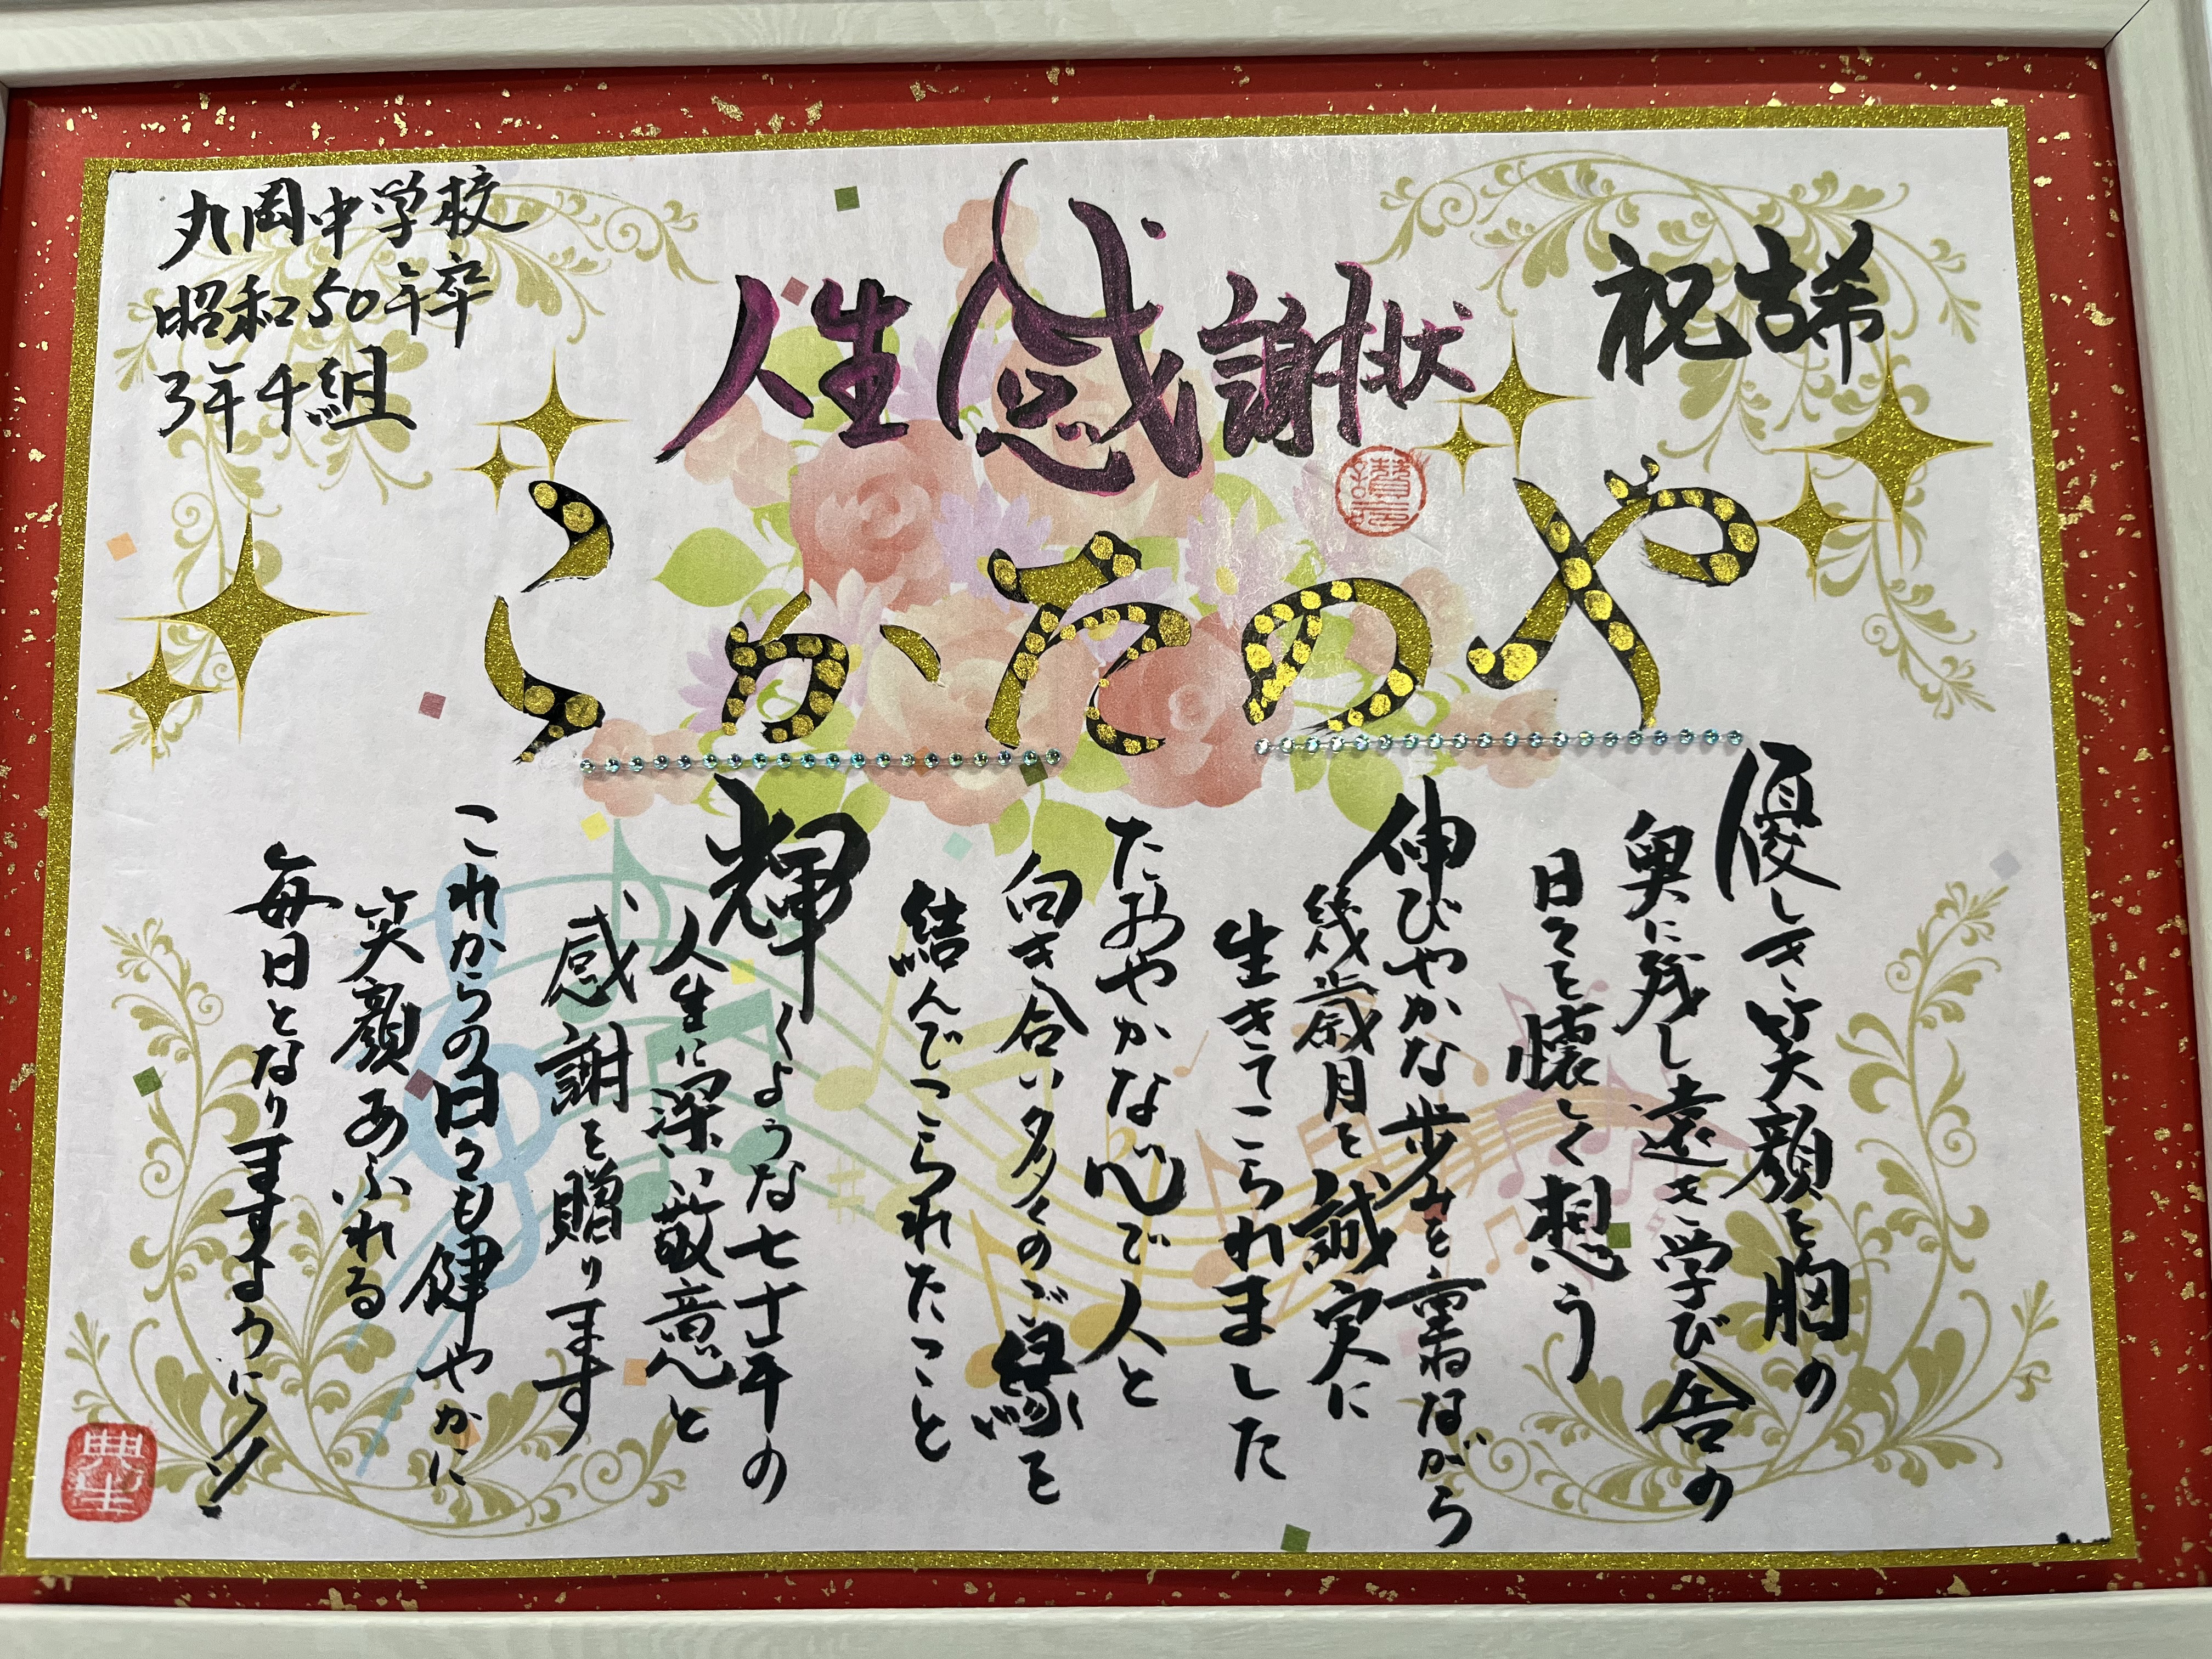 祝 古希
人生感謝状
丸岡中学校
昭和50年卒
3年4組
やのたかこ
優しき笑顔を胸の
奥に残し遠き学び舎の
日々を懐しく想う
伸びやかな歩みを重ねながら
幾歳月を誠実に
生きてこられました
たおやかな心で人と
向き合い多くのご縁を
結んでこられたこと
輝くような七十年の
人生に深い敬意と
感謝を贈ります
これからの日々も健やかに
笑顔あふれる
毎日となりますように